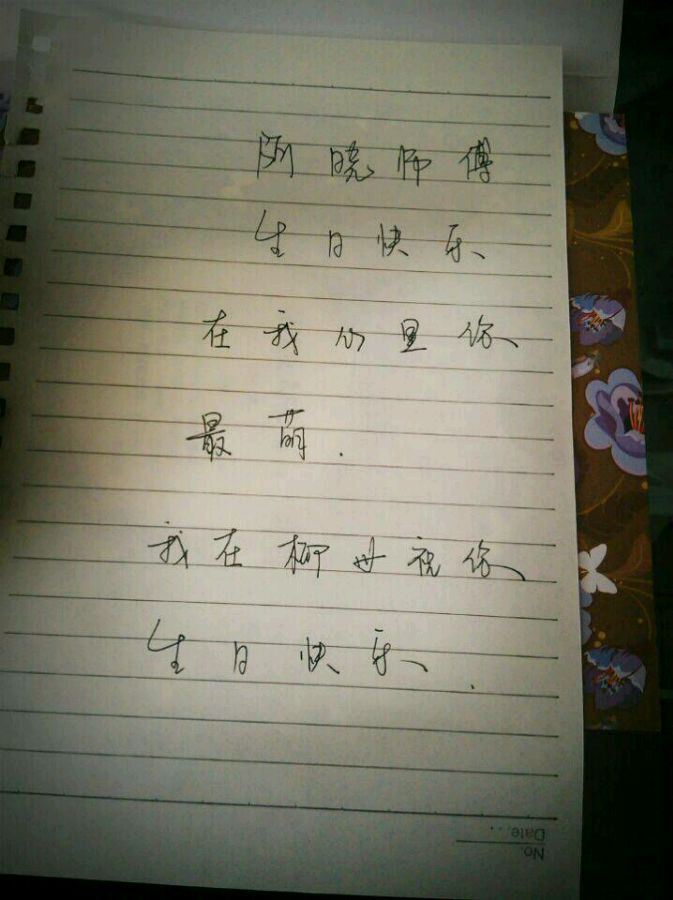 晓师傅
生日快乐
在我心里你
最萌.
我在柳 祝你
生日快乐.
No.
Date